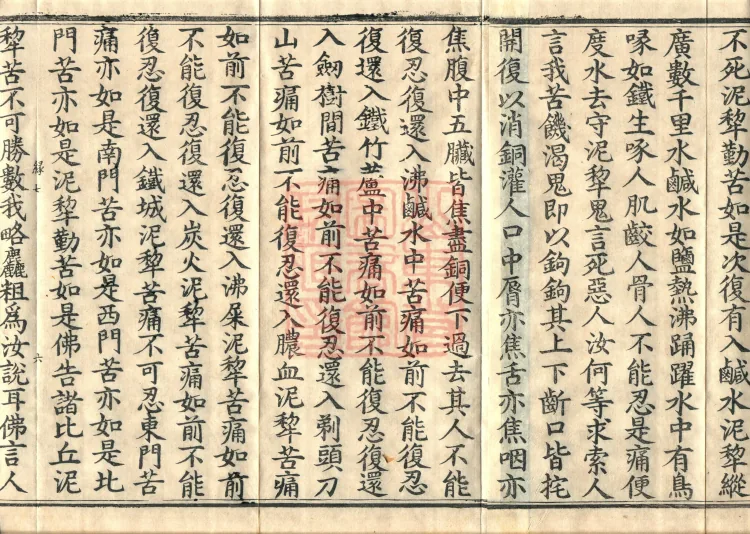 不死泥犂勤苦如是次復有入鹹水泥犂縱
廣數千里水鹹水如鹽熱沸踊躍水中有鳥
喙如鐵生啄人肌齩人骨人不能忍是痛便
度水去守泥犂鬼言死惡人汝何等求索人
言我苦飢渴鬼即以鉤鉤其上下齗口皆挓
開復以消銅灌人口中脣亦焦舌亦焦咽亦
焦腹中五臟皆焦盡銅便下過去其人不能
復忍復還入沸鹹水中苦痛如前不能復忍
復還入鐵竹蘆中苦痛如前不能復忍復還
入劒樹間苦痛如前不能復忍還入剃頭刀
山苦痛如前不能復忍還入膿血泥犂苦痛
如前不能復忍復還入沸屎泥犂苦痛如前
不能復忍復還入炭火泥犂苦痛如前不能
復忍復還入鐵城泥犂苦痛不可忍東門苦
痛亦如是南門苦亦如是西門苦亦如是北
門苦亦如是泥犂勤苦如是佛告諸比丘泥
緣七 六
犂苦不可勝數我略麤粗爲汝說耳佛言人